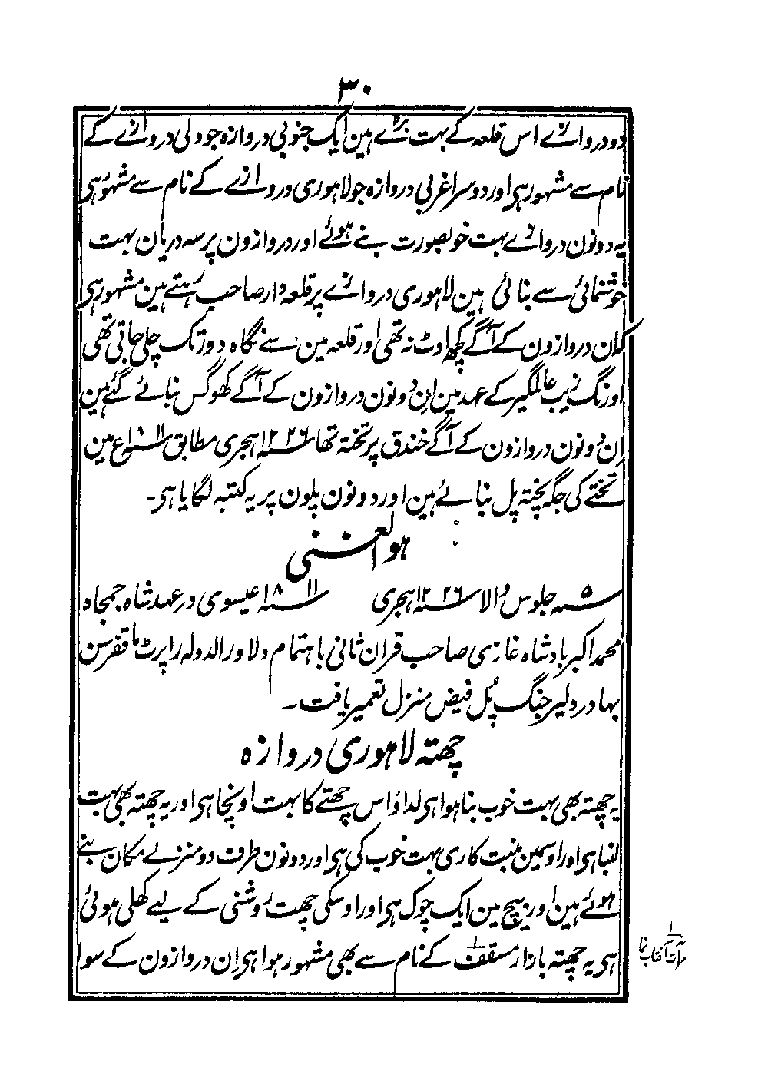 ۳۰
دو دروازے اس قلعہ کے بہت بڑے ہین ایک جنوبی دروازہ جو دلی دروازے کے
نام سے مشہور ہی اور دوسرا غربی دروازہ جو لاہوری دروازے کے نام سے مشہور ہی
یہ دونون دروازے بہت خوبصورت بنے ہوئے اور دروازون پر سہ دریان بہت
خوشنمائی سے بنائی ہین لاہوری دروازے پر قلعہ دار صاحب رہتے ہین مشہور ہی
کہ ان دروازون کے آگے کچھ اوٹ نہ تھی اور قلعہ مین سے نگاہ دور تک چلی جاتی تھی
اورنگ زیب عالمگیر کے عہد مین ان دونون دروازون کے آگے گھوگس بنائے گئے ہین
ان دونون دروازون کے آگے خندق پر تختہ تھا ۱۲۲۶ ہجری مطابق ۱۸۱۱ع مین
تختے کی جگہ پختہ پل بنائے ہین اور دونون پلون پر یہ کتبہ لگایا ہی۔
ہو الغنی
سنہ ۵ جلوس والا سنہ ۱۲۲۶ ہجری سنہ ۱۸۱۱ عیسوی در عہد شاہ جمجاہ
محمد اکبر بادشاہ غازی صاحب قران ثانی باہتمام دلاور الدولہ رابرٹ مقفرسن
بہادر دلیر جنگ پل فیض منزل تعمیر یافت۔
چھتہ لاہوری دروازہ
یہ چھتہ بھی بہت خوب بنا ہوا ہی لداؤ اس چھتے کا بہت اونچا ہی اور یہ چھتہ بھی بہت
لنبا ہی اور اوسمین منبت کاری بہت خوب کی ہی اور دونون طرف دو منزلے مکان بنے
ہوئے ہین اور بیچ مین ایک چوک ہی اور اوسکی چھت روشنی کے لیے کھلی ہوئی
ہی یہ چھتہ بازار مسقف کے نام سے بھی مشہور ہوا ہی ان دروازون کے سوا
۱
مرآت آفتاب نما